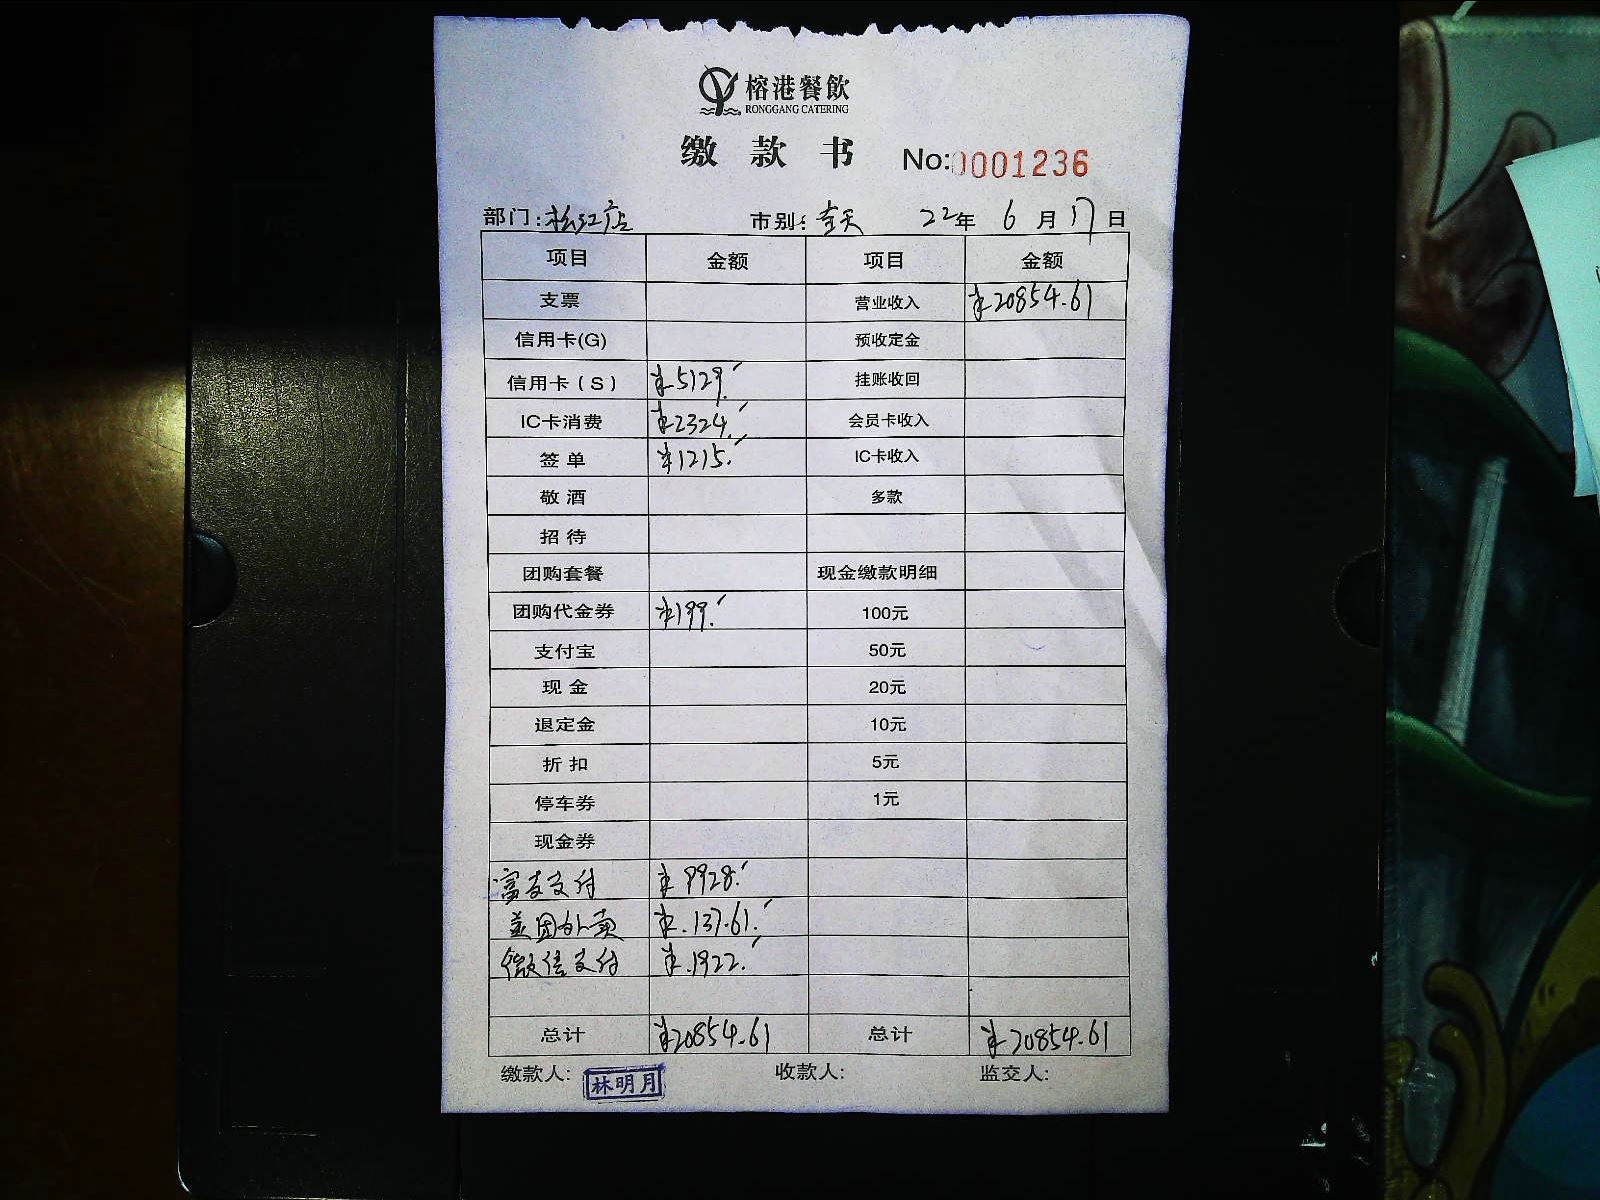 榕港餐飲
RONGGANG CATERING
缴款书 No:0001236
部门:松江店 市别:全天 22年 6月17日
项目 金额 项目 金额
支票 营业收入 ¥20854.61
信用卡(G) 预收定金
信用卡(S) ¥5129. 挂账收回
IC卡消费 ¥2324. 会员卡收入
签单 ¥1215. IC卡收入
敬酒 多款
招待
团购套餐 现金缴款明细
团购代金券 ¥199. 100元
支付宝 50元
现金 20元
退定金 10元
折扣 5元
停车券 1元
现金券
富友支付 ¥9928.
美团外卖 ¥.137.61.
微信支付 ¥.1922.
总计 ¥20854.61 总计 ¥20854.61
缴款人: 林明月 收款人: 监交人: